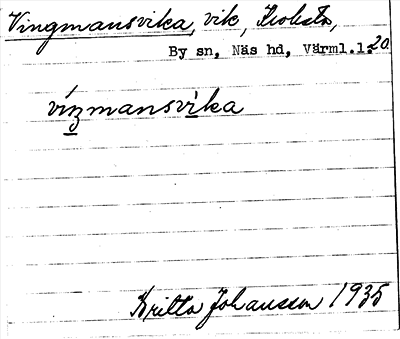 Vingmansvika, vik, Kroksta,
By sn, Näs hd, Värml.l. 20.
vínzmansvìka
Britta Johansson 1935